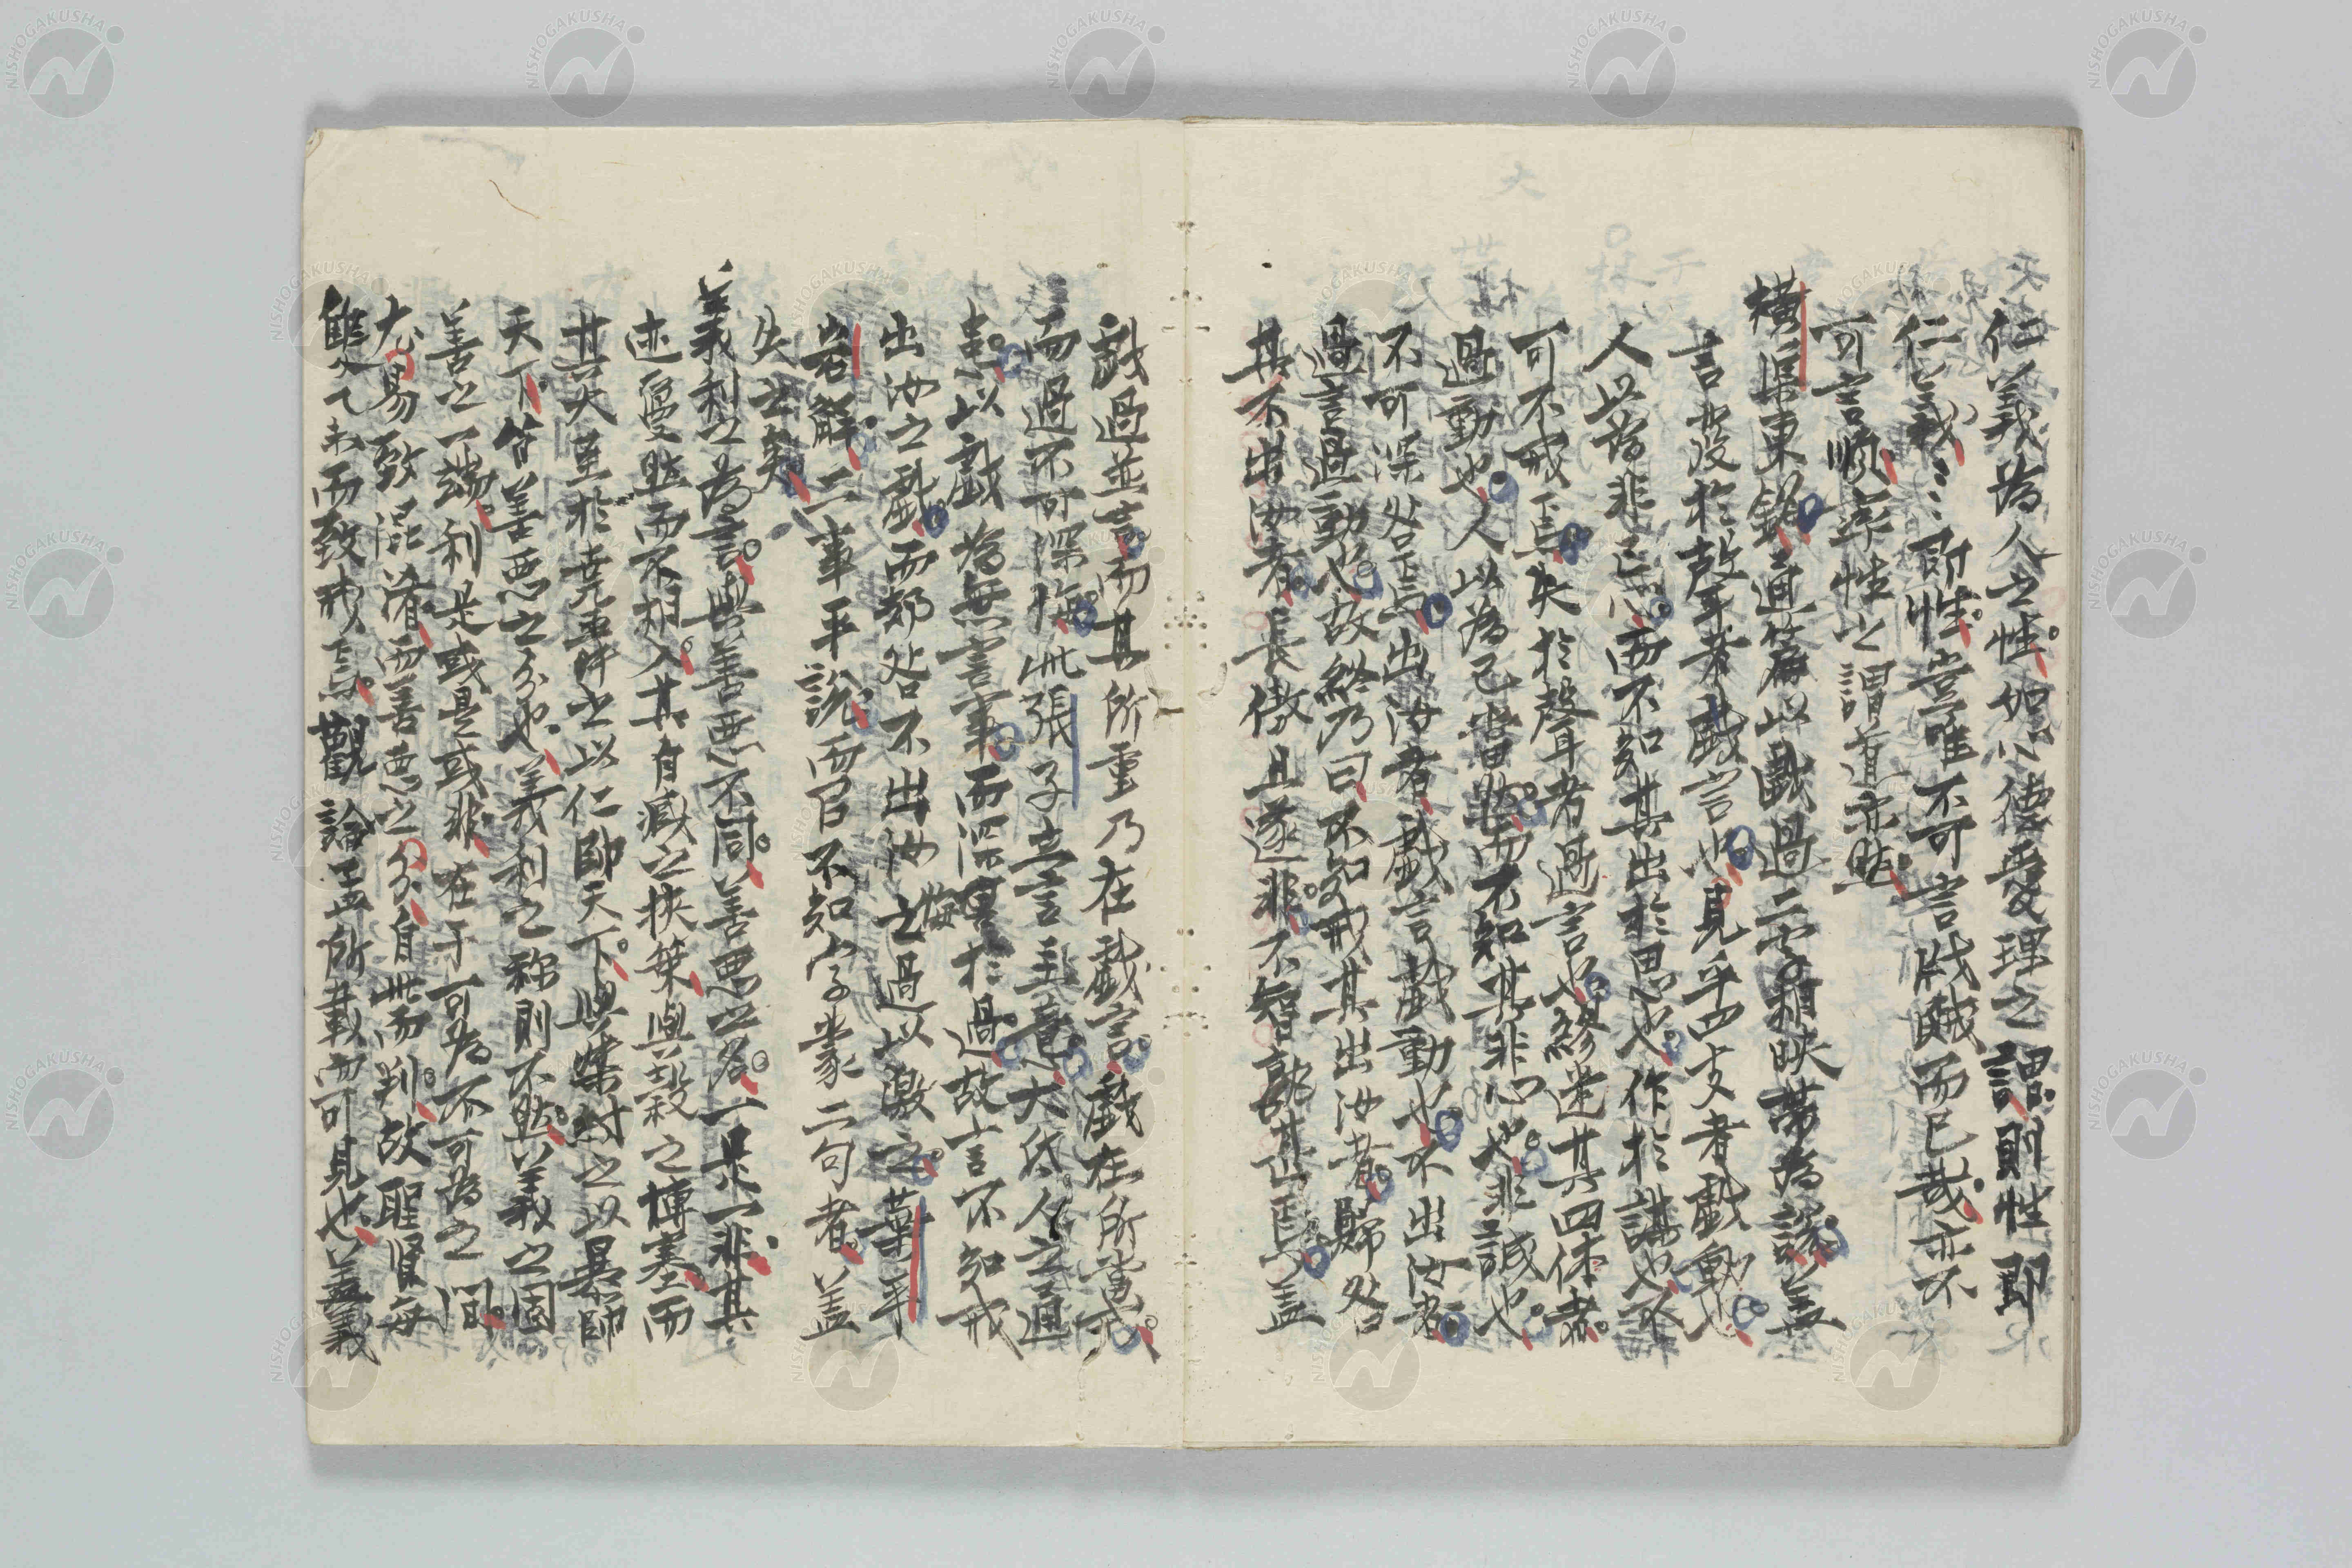 仁義為人之性如心德愛理之謂則性即
仁義〻〻即性豈唯不可言戕賊而已哉亦不
可言順率性之謂道亦然
橫渠東銘通篇以戲過二字相映帶為議蓋
言發於聲者戲言也見乎四支者戲動也
人以為非己心而不知其出於思也作於謀也不
可不戒焉失於聲者過言也繆迷其四体者
過動也人以為己當然而不知其非心也非誠也
不可深咎焉出汝者戲言戲動也不出汝者
過言過動也故終乃曰不知戒其出汝者歸咎
其不出汝者長傲且遂非不智孰甚焉蓋
戲過並言而其所重乃在戲言戲在所當戒
而過不可深悔此張子立言主意大低人之通
患以戲為無害事而深悔於過故言不知戒
出汝之戲而却咎不出汝之過以激之葉平
岩解二事平說而官不知字蒙二句者蓋
失之矣
義利之為言與善惡不同善惡之名一是一非其
迹夐然而不相入其自臧之挾筴與穀之博塞而
其大至於堯舜之以仁帥天下與桀紂之以暴帥
天下皆善惡之分也義利之称則不然義之固
善之一端利是或是或非在于可為不可為之間
尤易致混淆而善惡之分自此而判故聖賢每
而致戒焉觀論孟所載而可見也蓋義